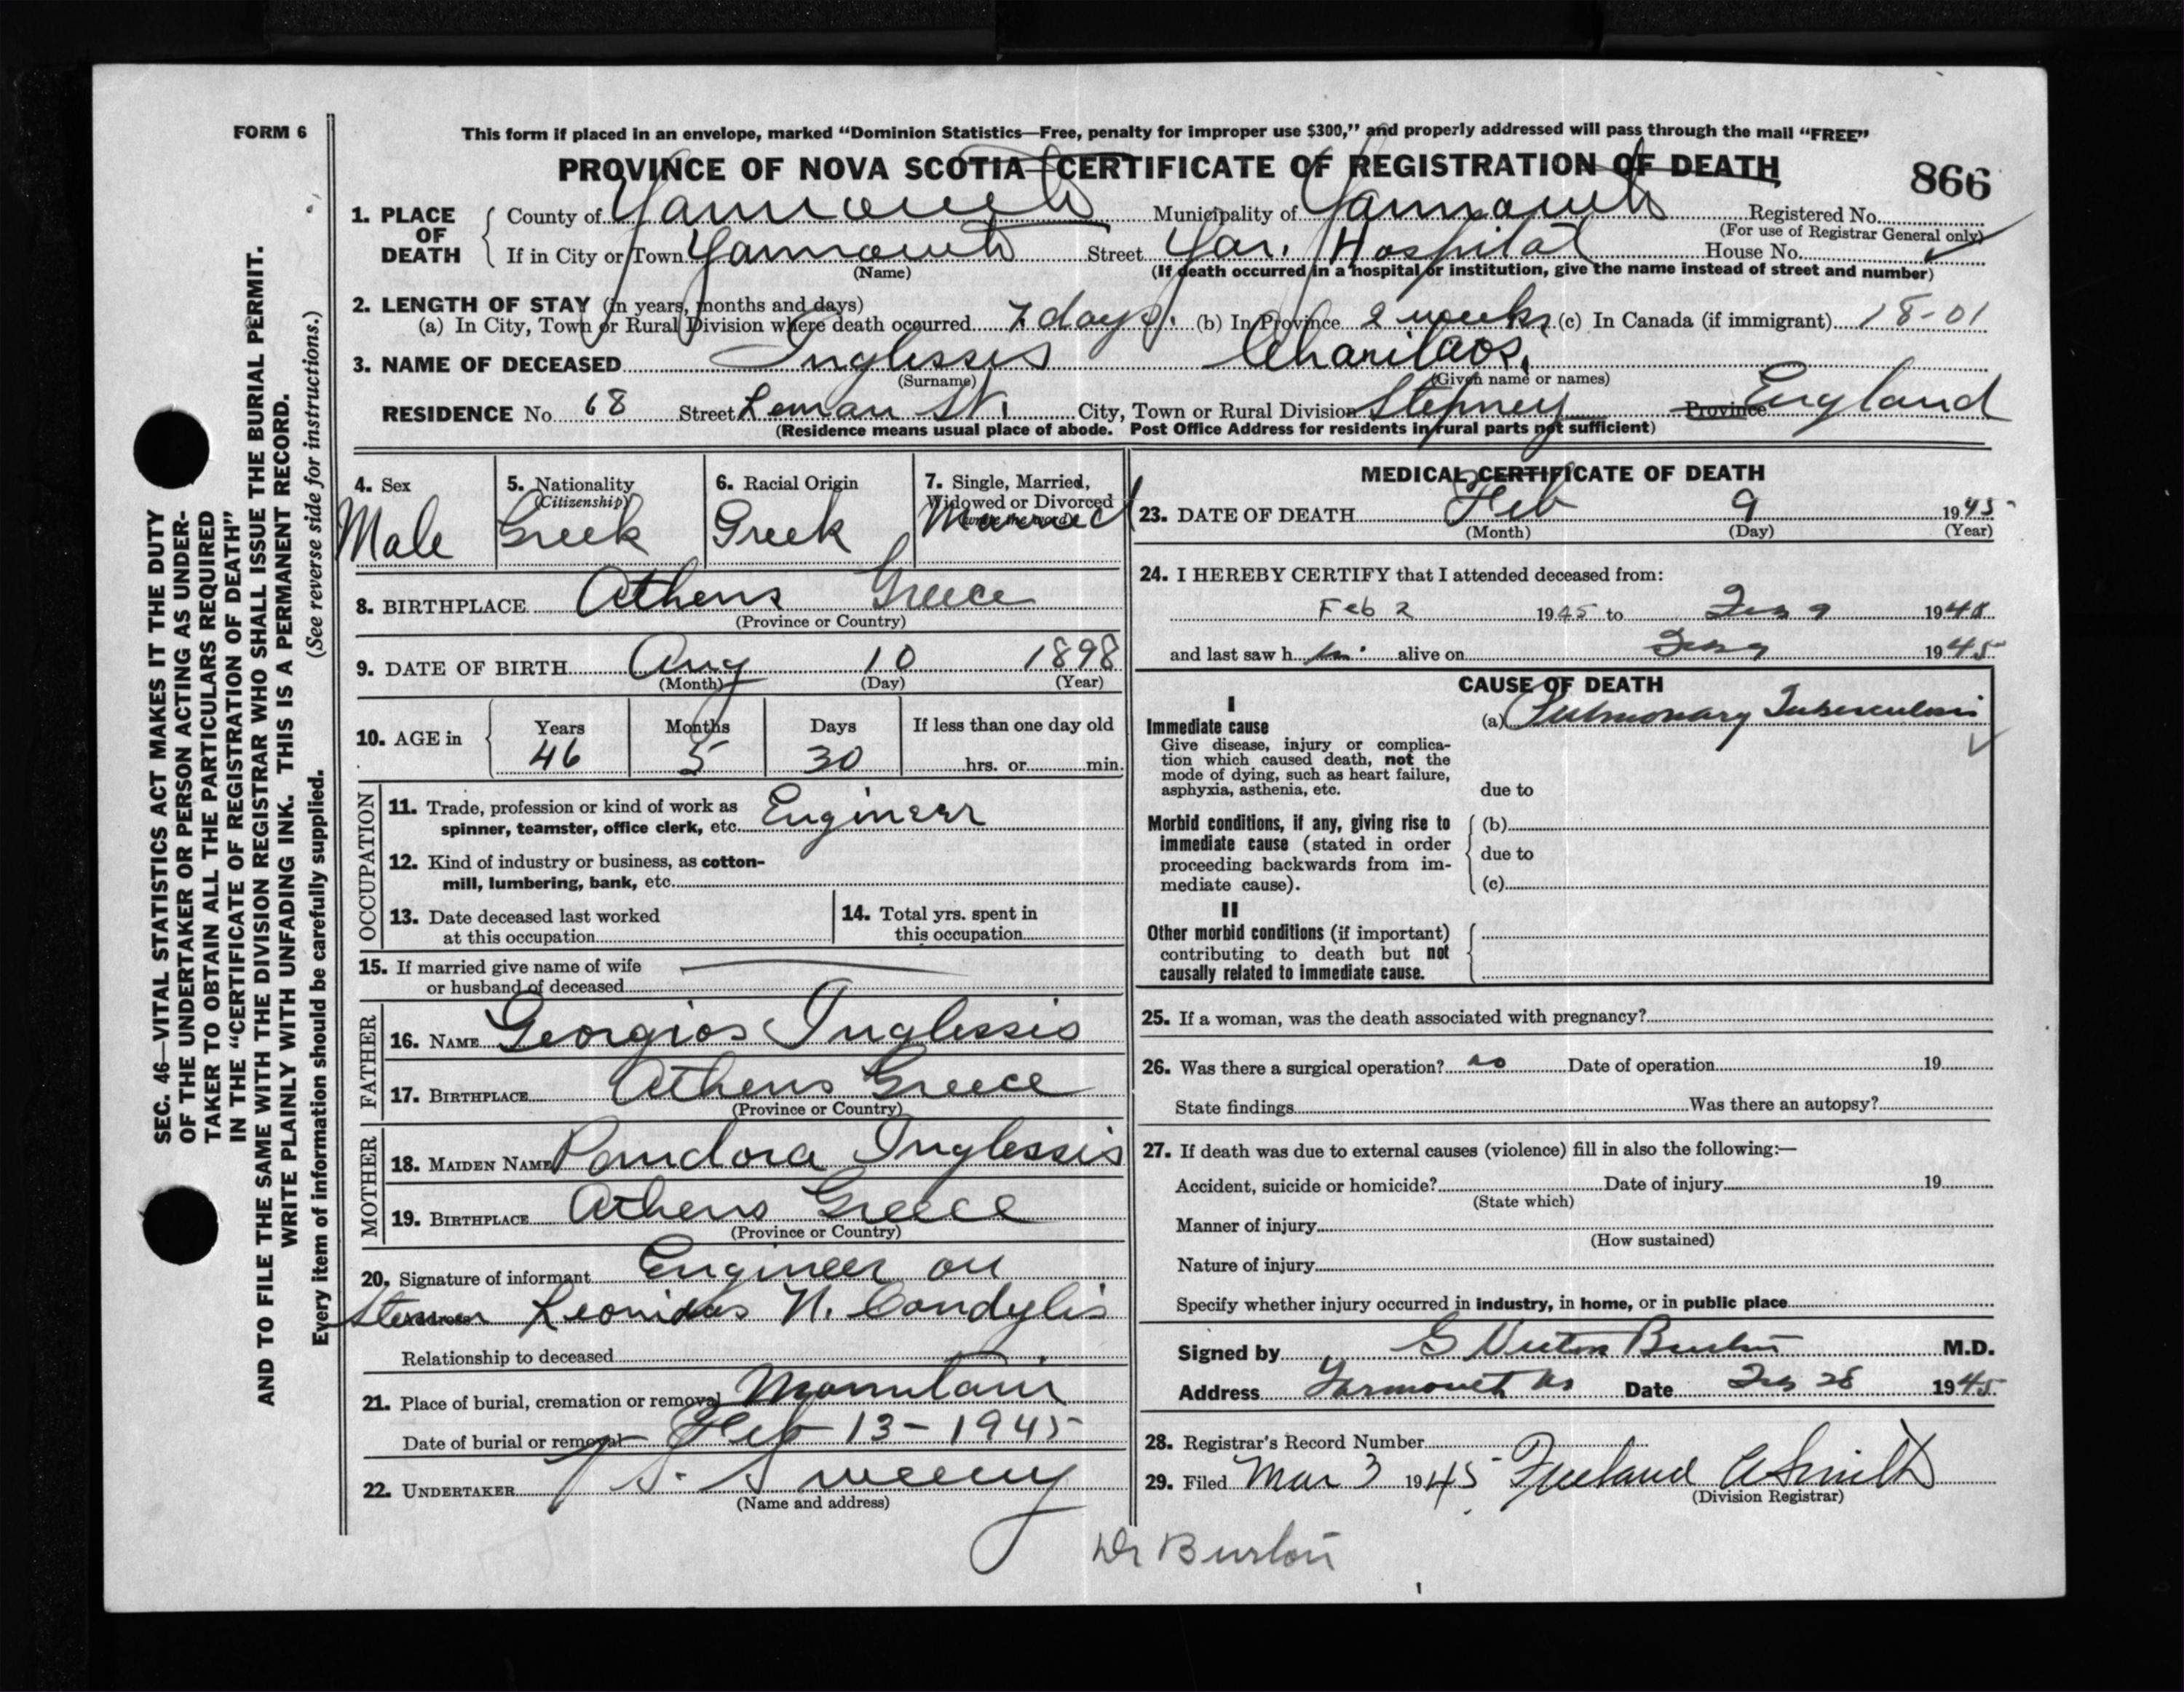 FORM 6
This form if placed in an envelope, marked “Dominion Statistics—Free, penalty for improper use $300,” and properly addressed will pass through the mail “FREE”
PROVINCE OF NOVA SCOTIA—CERTIFICATE OF REGISTRATION OF DEATH
866
1. PLACE OF DEATH { County of Yarmouth Municipality of Yarmouth Registered No.
(For use of Registrar General only)
If in City or Town Yarmouth Street Yar. Hospital House No.
(Name) (If death occurred in a hospital or institution, give the name instead of street and number)
2. LENGTH OF STAY (in years, months and days)
(a) In City, Town or Rural Division where death occurred 7 days. (b) In Province 2 weeks (c) In Canada (if immigrant) 18-01
3. NAME OF DECEASED Inglessis Charilaos.
(Surname) (Given name or names)
RESIDENCE No. 68 Street Leman St. City, Town or Rural Division Stepney Province England
(Residence means usual place of abode. Post Office Address for residents in rural parts not sufficient)
4. Sex Male
5. Nationality (Citizenship) Greek
6. Racial Origin Greek
7. Single, Married, Widowed or Divorced (write the word) Married
8. BIRTHPLACE Athens Greece
(Province or Country)
9. DATE OF BIRTH Aug 10 1898
(Month) (Day) (Year)
10. AGE in { Years 46 Months 5 Days 30 If less than one day old
hrs. or min.
OCCUPATION
11. Trade, profession or kind of work as
spinner, teamster, office clerk, etc. Engineer
12. Kind of industry or business, as cotton-
mill, lumbering, bank, etc.
13. Date deceased last worked
at this occupation
14. Total yrs. spent in
this occupation
15. If married give name of wife
or husband of deceased
FATHER
16. NAME Georgios Inglessis
17. BIRTHPLACE Athens Greece
(Province or Country)
MOTHER
18. MAIDEN NAME Pandora Inglessis
19. BIRTHPLACE Athens Greece
(Province or Country)
20. Signature of informant Engineer on
Address Steamer Leonidas N. Condylis
Relationship to deceased
21. Place of burial, cremation or removal Mountain
Date of burial or removal Feb 13-1945
22. UNDERTAKER Sweeny
(Name and address)
MEDICAL CERTIFICATE OF DEATH
23. DATE OF DEATH Feb 9 1945
(Month) (Day) (Year)
24. I HEREBY CERTIFY that I attended deceased from:
Feb 2 1945 to Feb 9 1945
and last saw h im alive on Feb 9 1945
CAUSE OF DEATH
I
Immediate cause (a) Pulmonary Tuberculosis
Give disease, injury or complica-
tion which caused death, not the
mode of dying, such as heart failure,
asphyxia, asthenia, etc. due to
Morbid conditions, if any, giving rise to { (b)
immediate cause (stated in order
proceeding backwards from im- due to
mediate cause). (c)
II
Other morbid conditions (if important)
contributing to death but not
causally related to immediate cause.
25. If a woman, was the death associated with pregnancy?
26. Was there a surgical operation? no Date of operation 19
State findings Was there an autopsy?
27. If death was due to external causes (violence) fill in also the following:—
Accident, suicide or homicide? Date of injury 19
(State which)
Manner of injury
(How sustained)
Nature of injury
Specify whether injury occurred in industry, in home, or in public place
Signed by G Victor Burton M.D.
Address Yarmouth NS Date Feb 28 1945
28. Registrar's Record Number
29. Filed Mar 3 1945 Freeland A Smith
(Division Registrar)
Dr Burton
SEC. 46—VITAL STATISTICS ACT MAKES IT THE DUTY
OF THE UNDERTAKER OR PERSON ACTING AS UNDER-
TAKER TO OBTAIN ALL THE PARTICULARS REQUIRED
IN THE “CERTIFICATE OF REGISTRATION OF DEATH”
AND TO FILE THE SAME WITH THE DIVISION REGISTRAR WHO SHALL ISSUE THE BURIAL PERMIT.
WRITE PLAINLY WITH UNFADING INK. THIS IS A PERMANENT RECORD.
Every item of information should be carefully supplied. (See reverse side for instructions.)